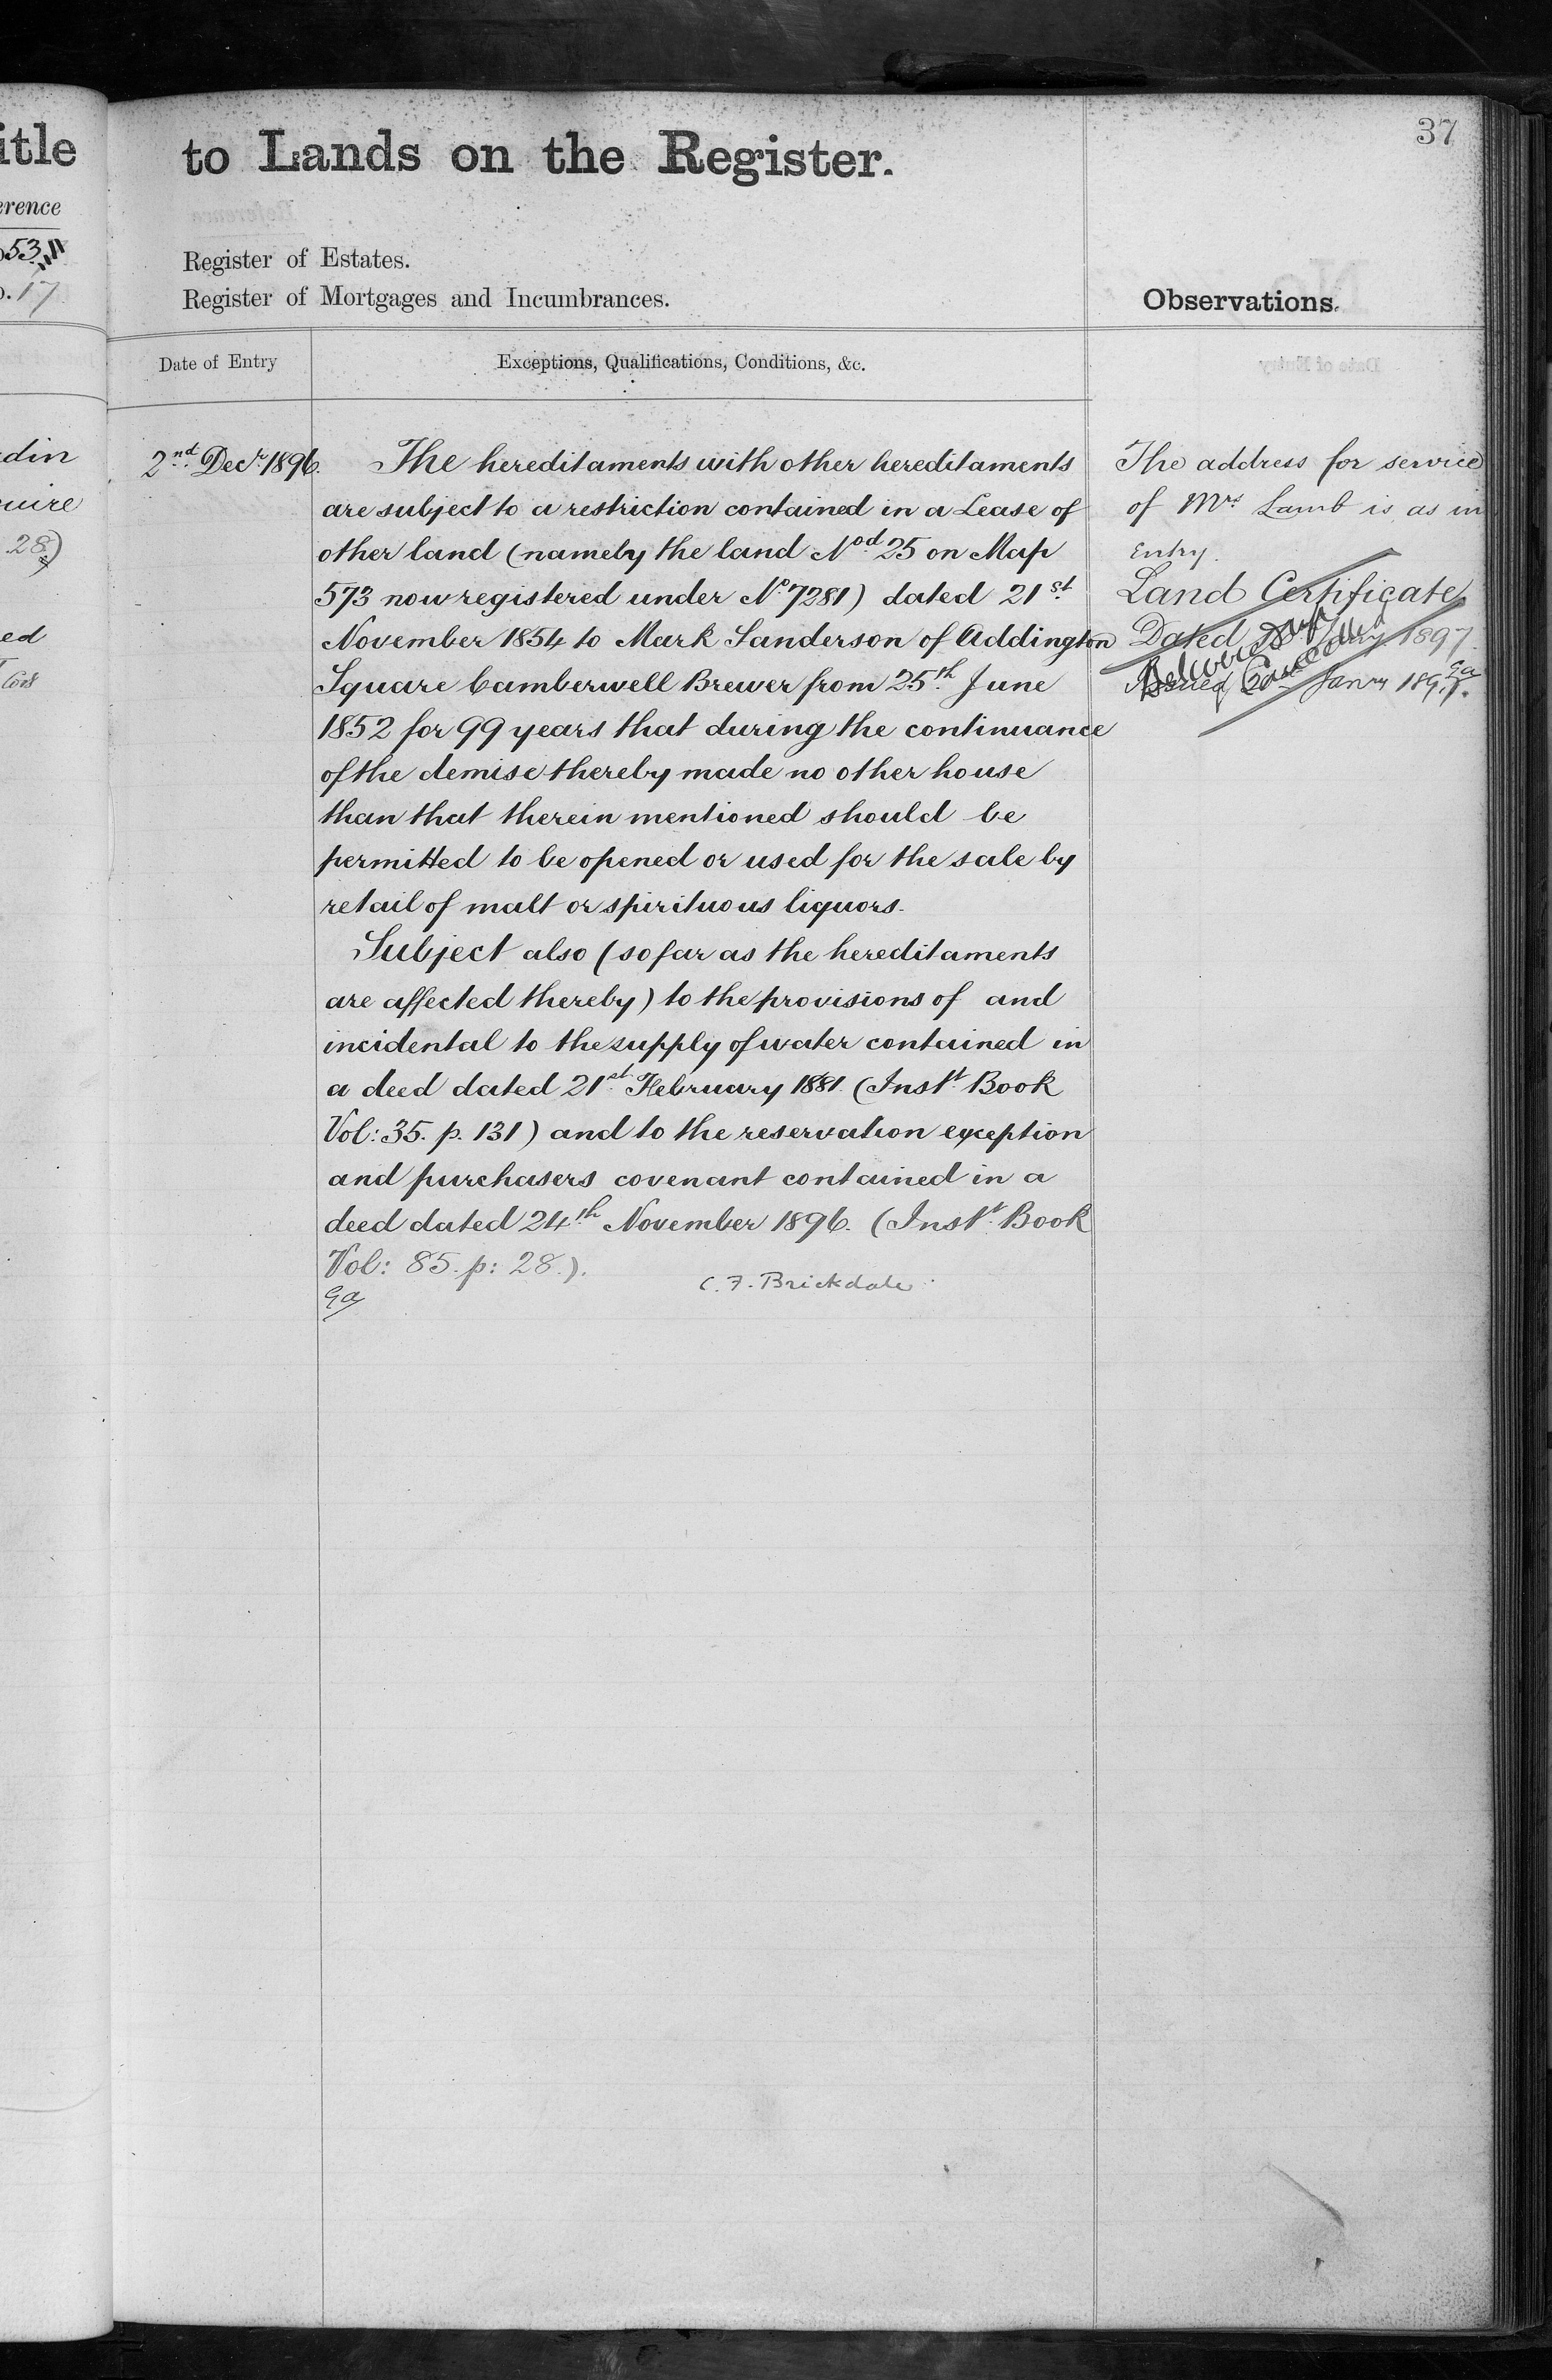 itle
erence
053
o. 17
din
uire
28)
ed
37
to Lands on the Register.
Register of Estates.
Register of Mortgages and Incumbrances.
Observations.
Date of Entry
Exceptions, Qualifications, Conditions, &c.
2nd Decr 1896.
The hereditaments with other hereditaments
are subject to a restriction contained in a Lease of
other land (namely the land Nod 25 on Map
573 now registered under No 7281) dated 21st
November 1854 to Mark Sanderson of Addington
Square Camberwell Brewer from 25th June
1852 for 99 years that during the continuance
of the demise thereby made no other house
than that therein mentioned should be
permitted to be opened or used for the sale by
retail of malt or spirituous liquors.
Subject also (so far as the hereditaments
are affected thereby) to the provisions of and
incidental to the supply of water contained in
a deed dated 21st February 1881. (Instt Book
Vol: 35. p. 131) and to the reservation exception
and purchasers covenant contained in a
deed dated 24th November 1896. (Instt Book
Vol: 85. p: 28.).
C. F. Brickdale
The address for service
of Mrs Lamb is as in
Entry.
Land Certificate
Dated 1897.
Delivered up
Cancelled
Issued Janry 1897.